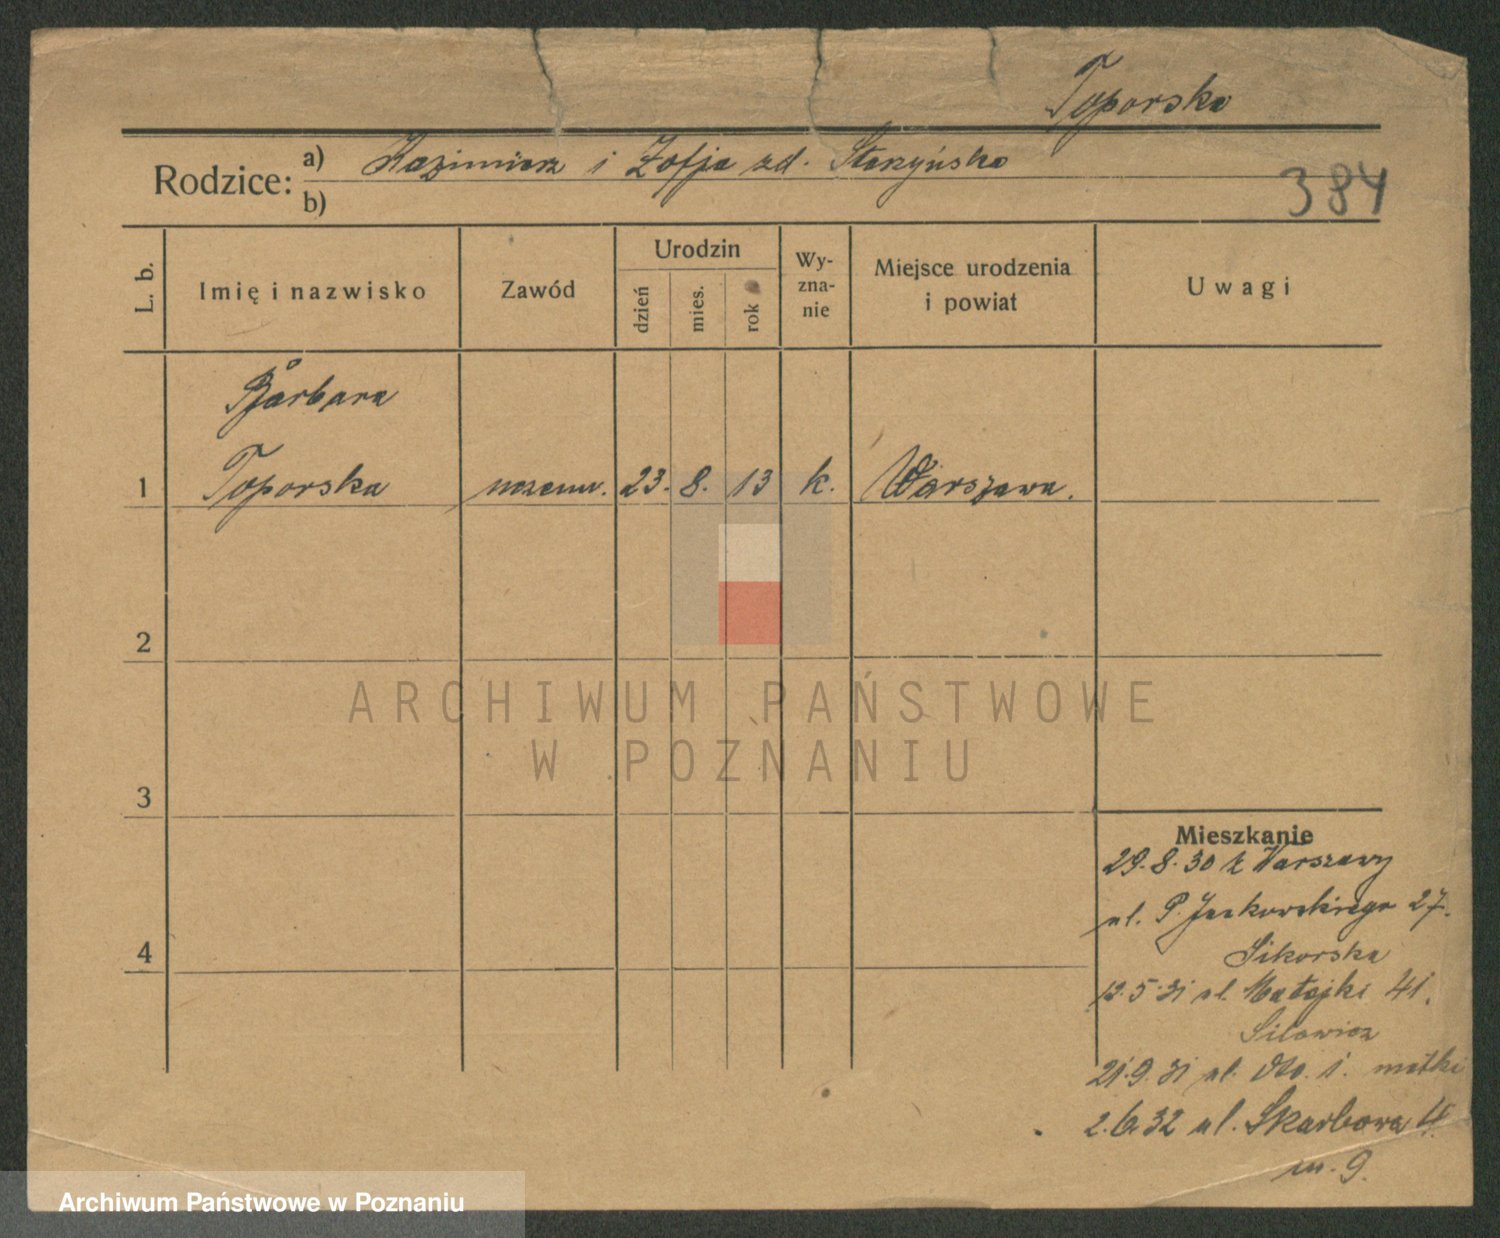 Toporska
Rodzice: a) Kazimierz i Zofja zd. Starzyńska
b)
384
L. b. Imię i nazwisko Zawód Urodzin dzień mies. rok Wy-zna-nie Miejsce urodzenia i powiat Uwagi
Barbara
1 Toporska uczenn. 23. 8. 13 k. Warszawa.
2
ARCHIWUM PAŃSTWOWE
W POZNANIU
3
Mieszkanie
29.8.30 z Warszawy
ul. P. Jackowskiego 27.
4
Sikorska
12.5.31 ul. Matejki 41.
21.9.31 ul. 1. matki
2.6.32 ul. Skarbowa 4
m. 9.
Archiwum Państwowe w Poznaniu